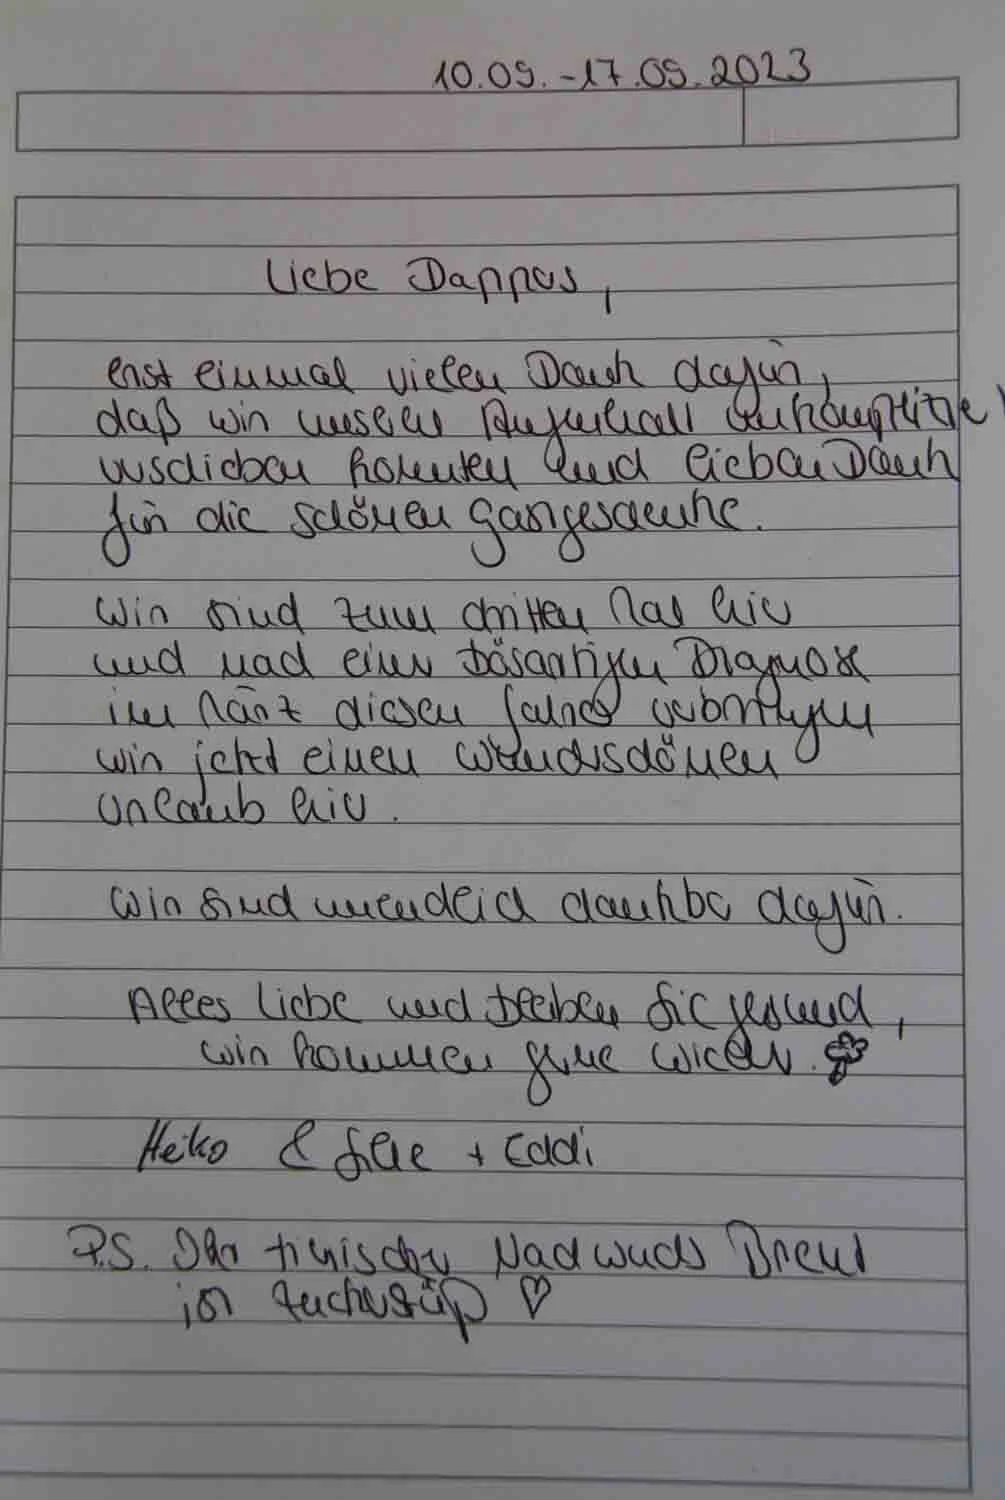 10.09.-17.09.2023
Liebe Dappers,
erst einmal vielen Dank dafür,
daß wir unseren Aufenthalt unkompliziert
verschieben konnten und lieben Dank
für die schönen Gastgeschenke.
Wir sind zum dritten Mal hier
und nach einer bösartigen Diagnose
im März diesen Jahres verbringen
wir jetzt einen wunderschönen
Urlaub hier.
Wir sind unendlich dankbar dafür.
Alles Liebe und bleiben Sie gesund,
wir kommen gerne wieder.
Heiko & Silke + Eddi
P.S. Ihr tierischer Nachwuchs
ist zuckersüß ♡